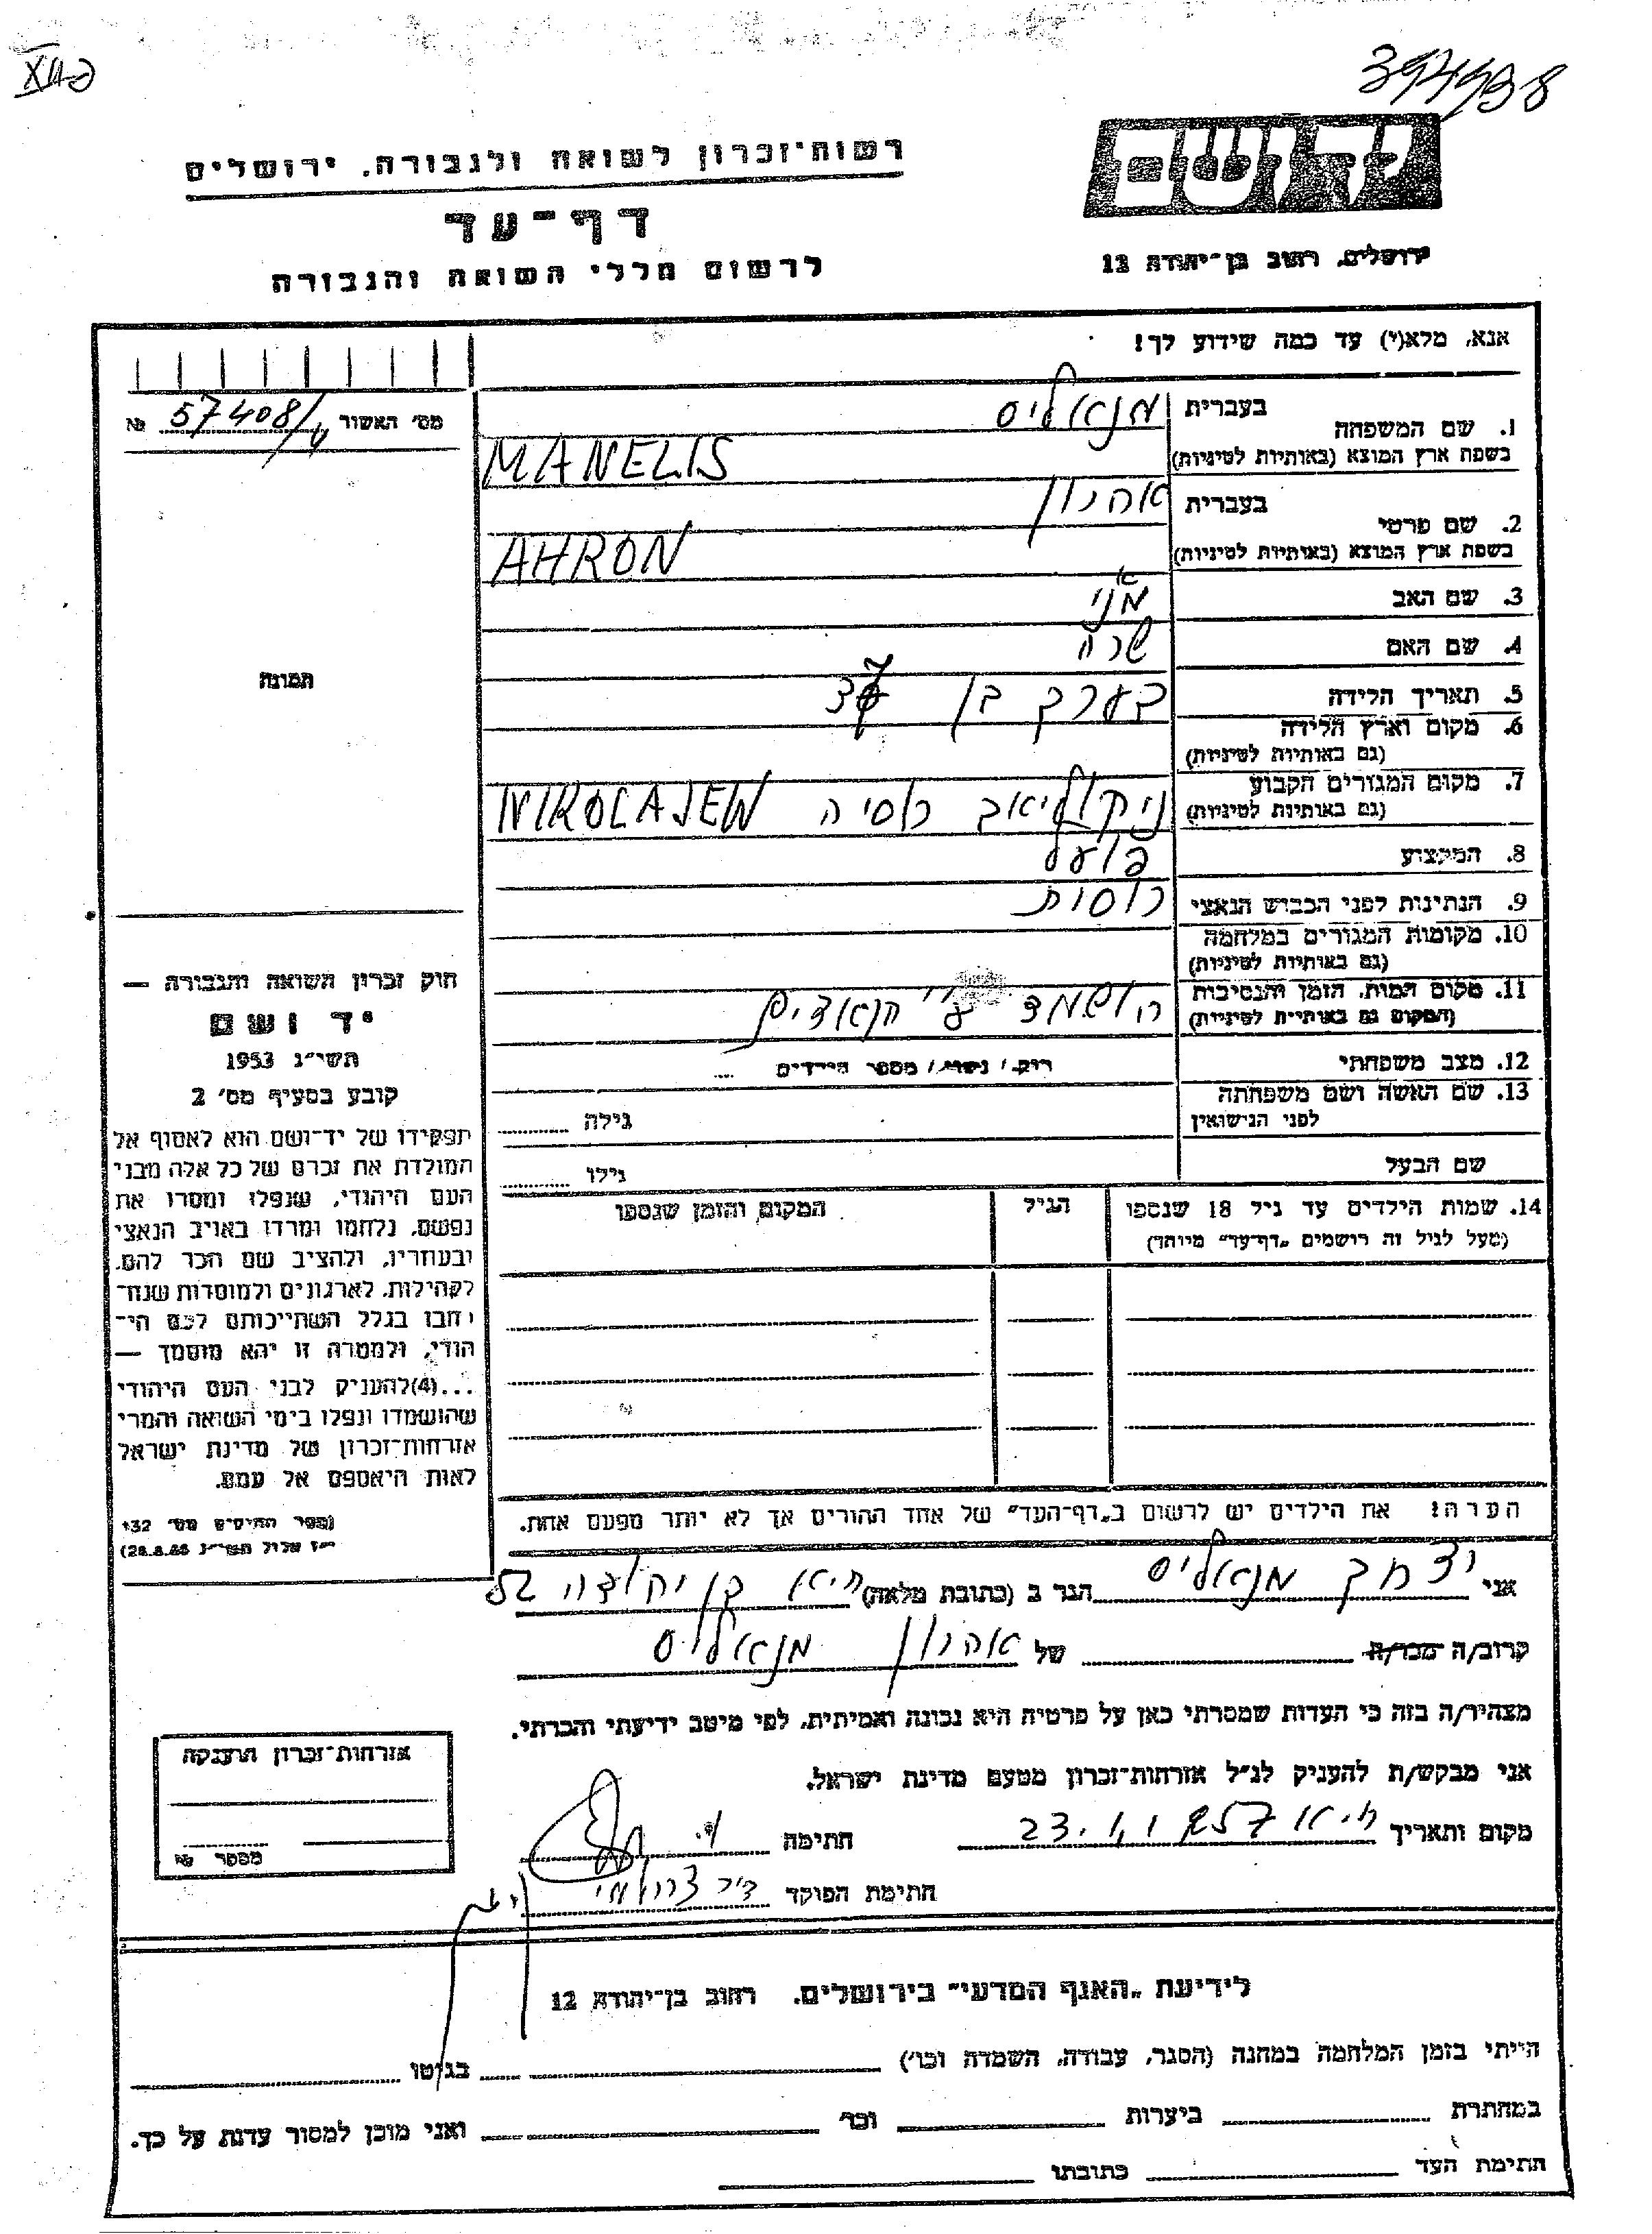 394998
רשות־זכרון לשואה ולגבורה. ירושלים
דף־עד
לרשום חללי השואה והגבורה
יד ושם
ירושלים. רחוב בן־יהודה 12
אנא, מלא(י) עד כמה שידוע לך!
מס׳ האשור 57408/ №
1. שם המשפחה
בעברית מנאליס
בשפת ארץ המוצא (באותיות לטיניות) MANELIS
2. שם פרטי
בעברית אהרון
בשפת ארץ המוצא (באותיות לטיניות) AHRON
3. שם האב מני
4. שם האם שרה
5. תאריך הלידה בערך בן 37
6. מקום וארץ הלידה
(גם באותיות לטיניות)
7. מקום המגורים הקבוע
(גם באותיות לטיניות) ניקולייאב רוסיה NIKOLAJEW
8. המקצוע פועל
9. הנתינות לפני הכבוש הנאצי רוסית
10. מקומות המגורים במלחמה
(גם באותיות לטיניות)
11. מקום המות. הזמן והנסיבות
(המקום גם באותיות לטיניות) הושמד ע״י הנאצים
12. מצב משפחתי רוק/ נשוי/ מספר הילדים
13. שם האשה ושם משפחתה
לפני הנישואין
גילה
שם הבעל
גילו
14. שמות הילדים עד גיל 18 שנספו
(מעל לגיל זה רושמים „דף־עד״ מיוחד)
הגיל
המקום והזמן שנספו
הערה! את הילדים יש לרשום ב„דף־העד״ של אחד ההורים אך לא יותר מפעם אחת.
תמונה
חוק זכרון השואה והגבורה —
יד ושם
תשי״ג 1953
קובע בסעיף מס׳ 2
תפקידו של יד־ושם הוא לאסוף אל
המולדת את זכרם של כל אלה מבני
העם היהודי, שנפלו ומסרו את
נפשם, נלחמו ומרדו באויב הנאצי
ובעוזריו, ולהציב שם וזכר להם.
לקהילות, לארגונים ולמוסדות שנח־
רבו בגלל השתייכותם לעם הי־
הודי, ולמטרה זו יהא מוסמך —
...(4)להעניק לבני העם היהודי
שהושמדו ונפלו בימי השואה והמרי
אזרחות־זכרון של מדינת ישראל
לאות היאספם אל עמם.
(ספר החוקים מס׳ 132
י״ז אלול תשי״ג 28.8.53)
אני יצחק מנאליס הגר ב (כתובת מלאה) בן יהודה 52
קרוב/ה מכר/ה של אהרון מנאליס
מצהיר/ה בזה כי העדות שמסרתי כאן על פרטיה היא נכונה ואמיתית, לפי מיטב ידיעתי והכרתי.
אני מבקש/ת להעניק לנ״ל אזרחות־זכרון מטעם מדינת ישראל.
מקום ותאריך 23.1.57 חתימה
חתימת הפוקד
אזרחות־זכרון הוענקה
מספר №
לידיעת „האגף המדעי״ בירושלים. רחוב בן־יהודה 12
הייתי בזמן המלחמה במחנה (הסגר, עבודה, השמדה וכו׳) בגיטו
במחתרת ביערות וכו׳ ואני מוכן למסור עדות על כך.
חתימת העד כתובתו